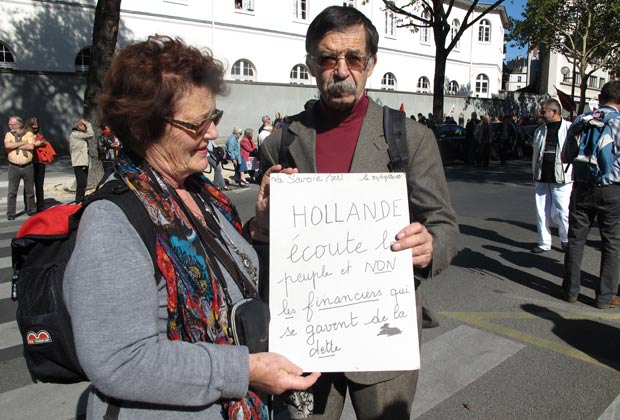 La Savoie (73)
HOLLANDE
écoute le
peuple et NON
les financiers qui
se gavent de la
dette